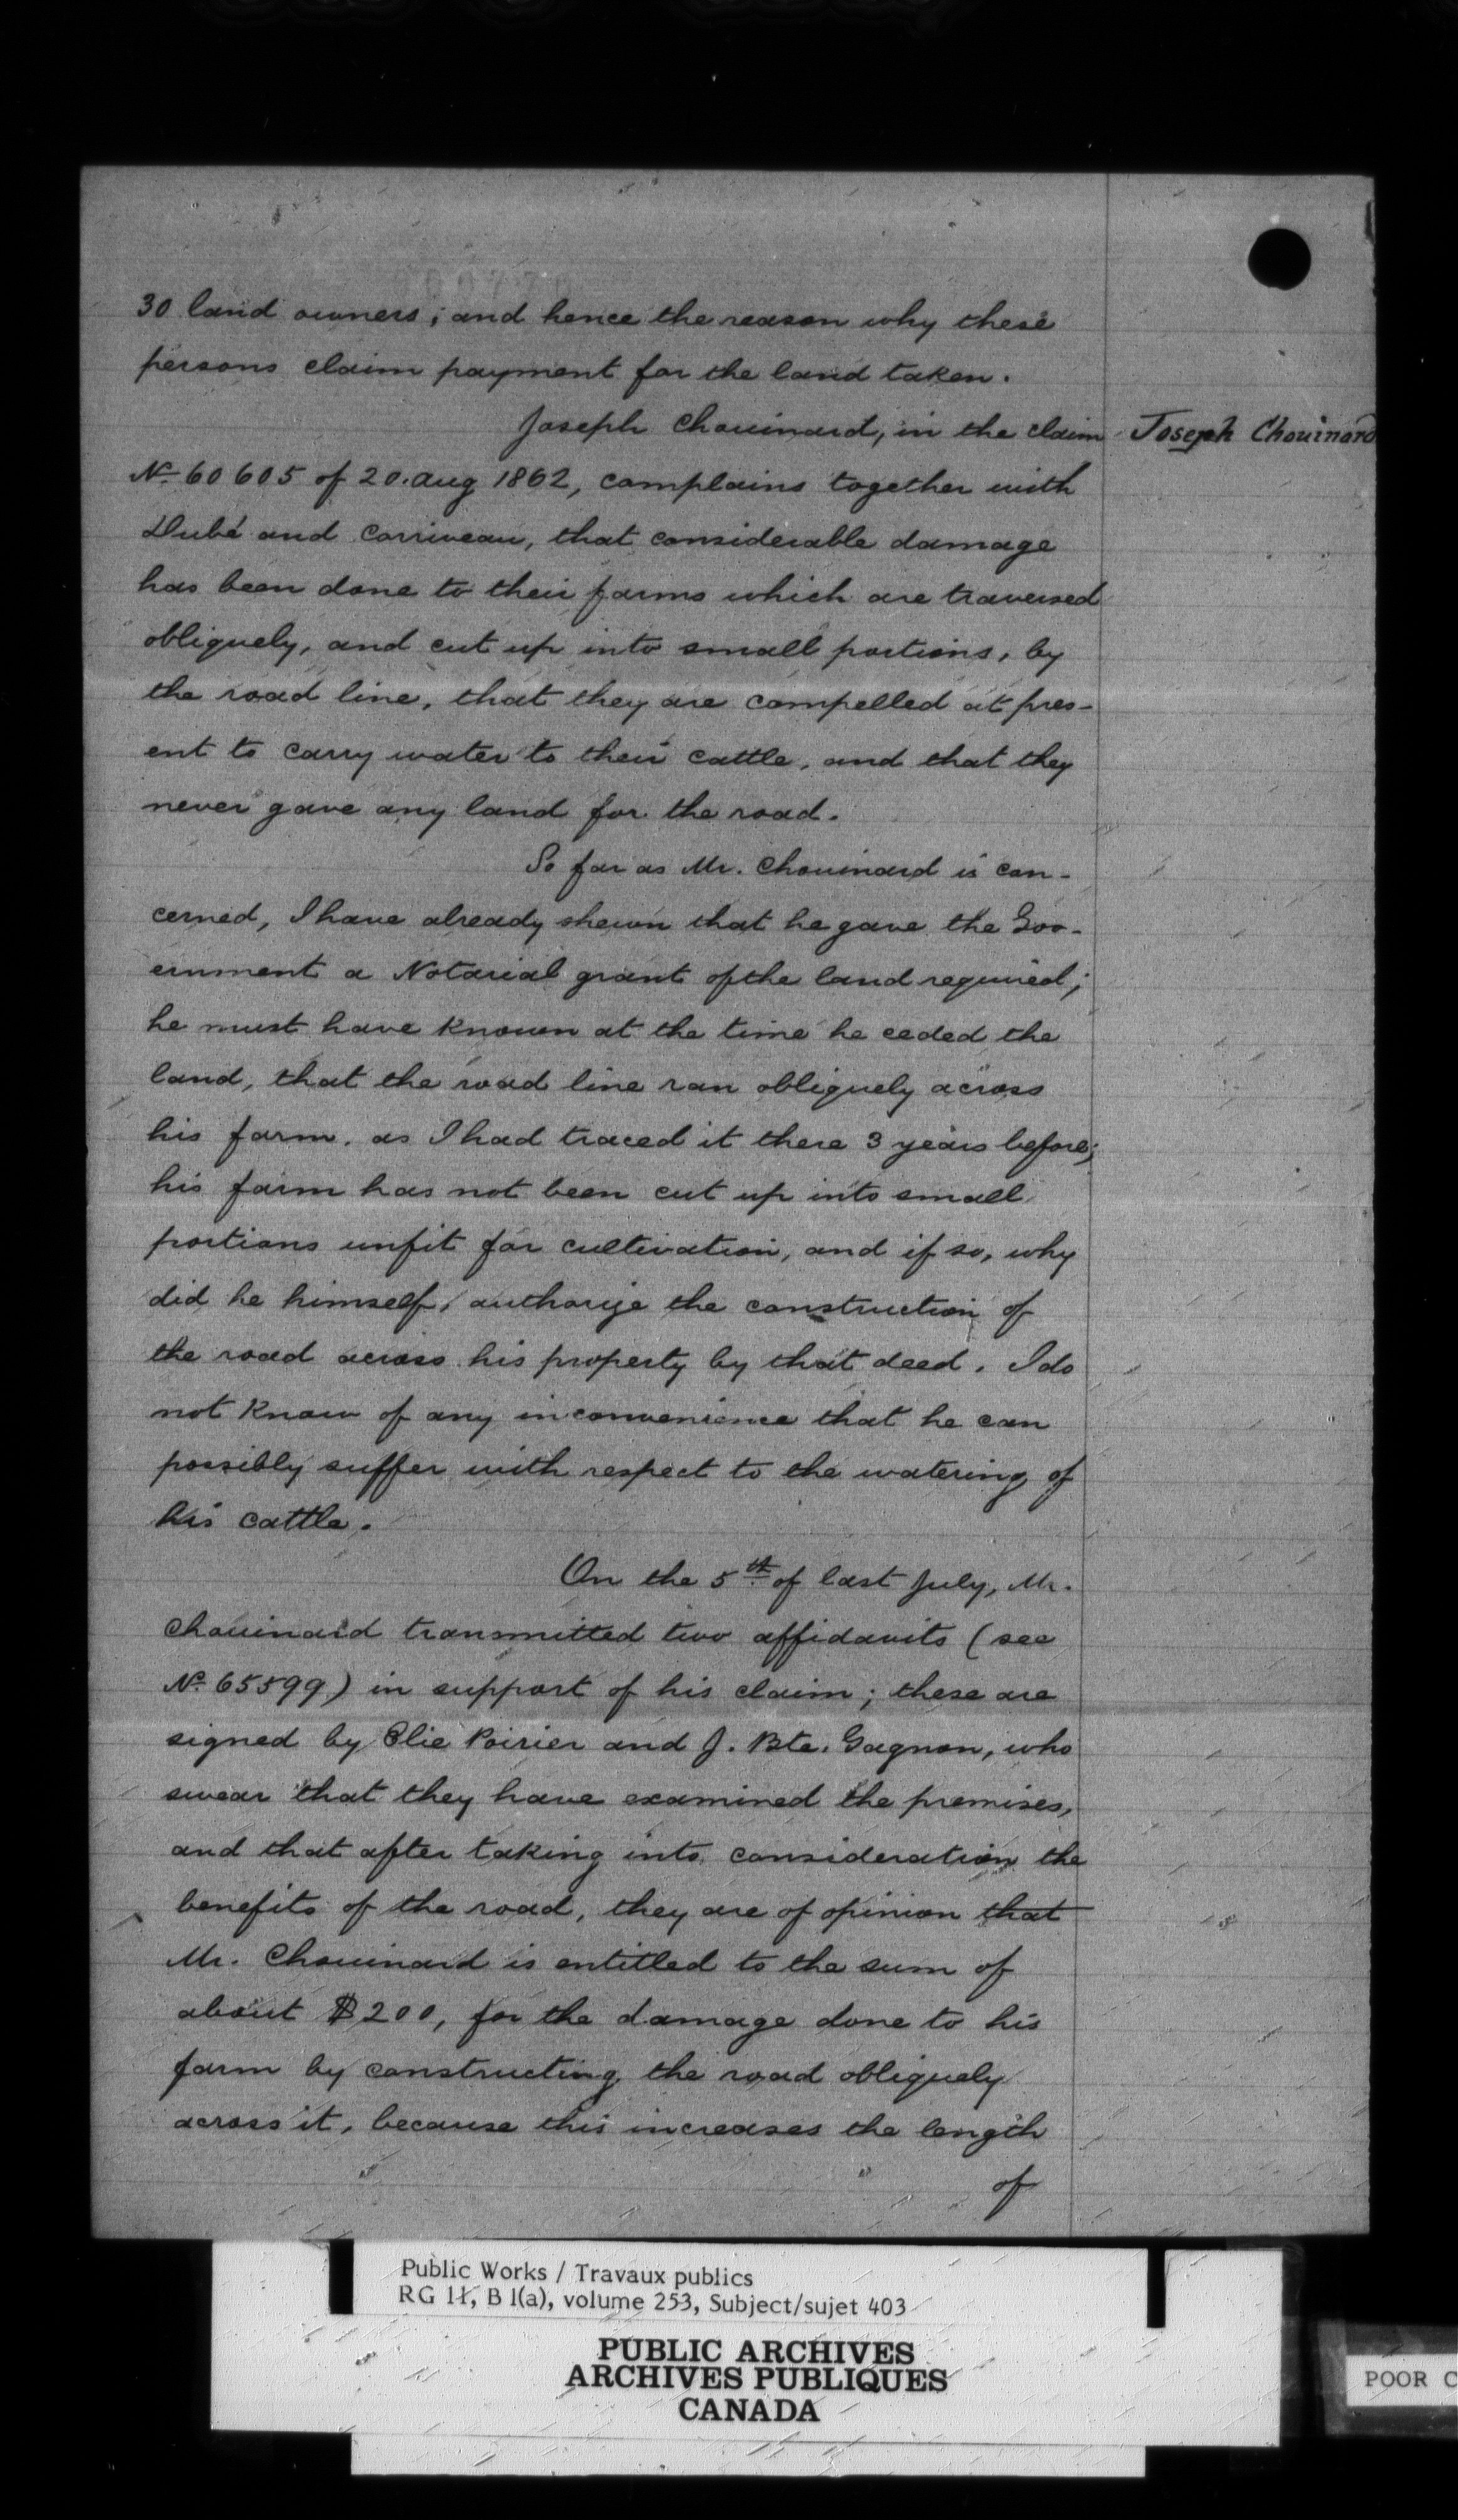 30 land owners; and hence the reason why these
persons claim payment for the land taken.
Joseph Chouinard, in the claim
Joseph Chouinard
No. 60605 of 20. Aug 1862, complains together with
Dubé and Corriveau, that considerable damage
has been done to their farms which are traversed
obliquely, and cut up into small portions, by
the road line, that they are compelled at pres-
ent to carry water to their cattle, and that they
never gave any land for the road.
So far as Mr. Chouinard is con-
cerned, I have already shewn that he gave the Gov-
ernment a Notarial grant of the land required;
he must have known at the time he ceded the
land, that the road line ran obliquely across
his farm, as I had traced it there 3 years before;
his farm has not been cut up into small
portions unfit for cultivation, and if so, why
did he himself, authorize the construction of
the road across his property by that deed. I do
not know of any inconvenience that he can
possibly suffer with respect to the watering of
his cattle.
On the 5th of last July, Mr.
Chouinard transmitted two affidavits (see
No. 65599) in support of his claim; these are
signed by Elie Poirier and J. Bte. Gagnon, who
swear that they have examined the premises,
and that after taking into consideration the
benefits of the road, they are of opinion that
Mr. Chouinard is entitled to the sum of
about $200, for the damage done to his
farm by constructing the road obliquely
across it, because this increases the length
of
Public Works / Travaux publics
RG 11, B 1(a), volume 253, Subject/sujet 403
PUBLIC ARCHIVES
ARCHIVES PUBLIQUES
CANADA
POOR C